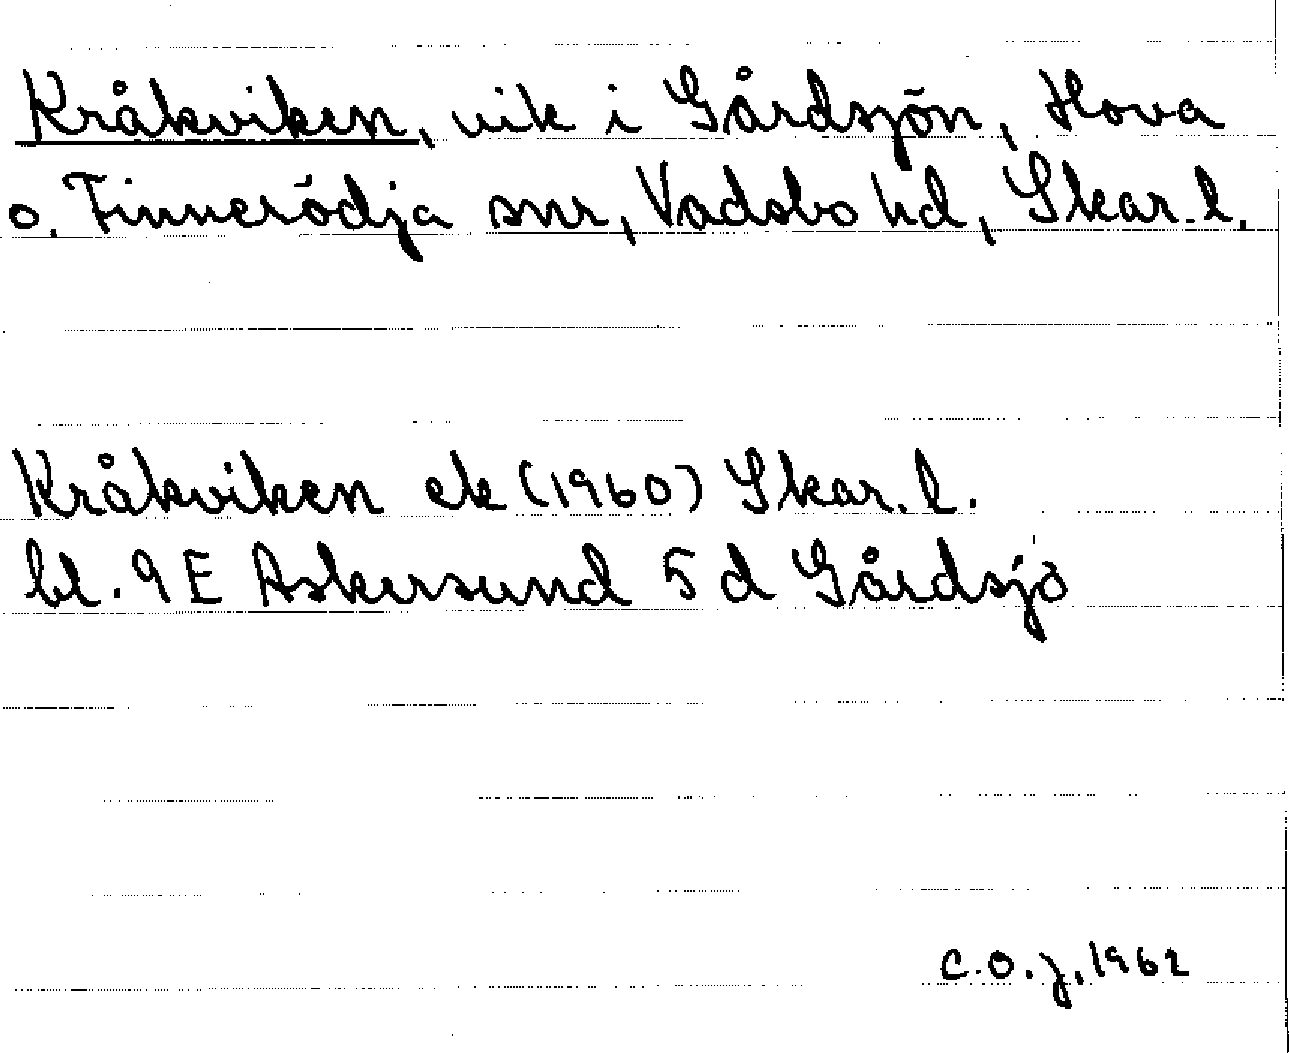 Kråkviken, vik i Gårdsjön, Hova
o. Finnerödja snr, Vadsbo hd, Skar. l.
Kråkviken ek (1960) Skar. l.
bl. 9 E Askersund 5 d Gårdsjö
C.O.J. 1962